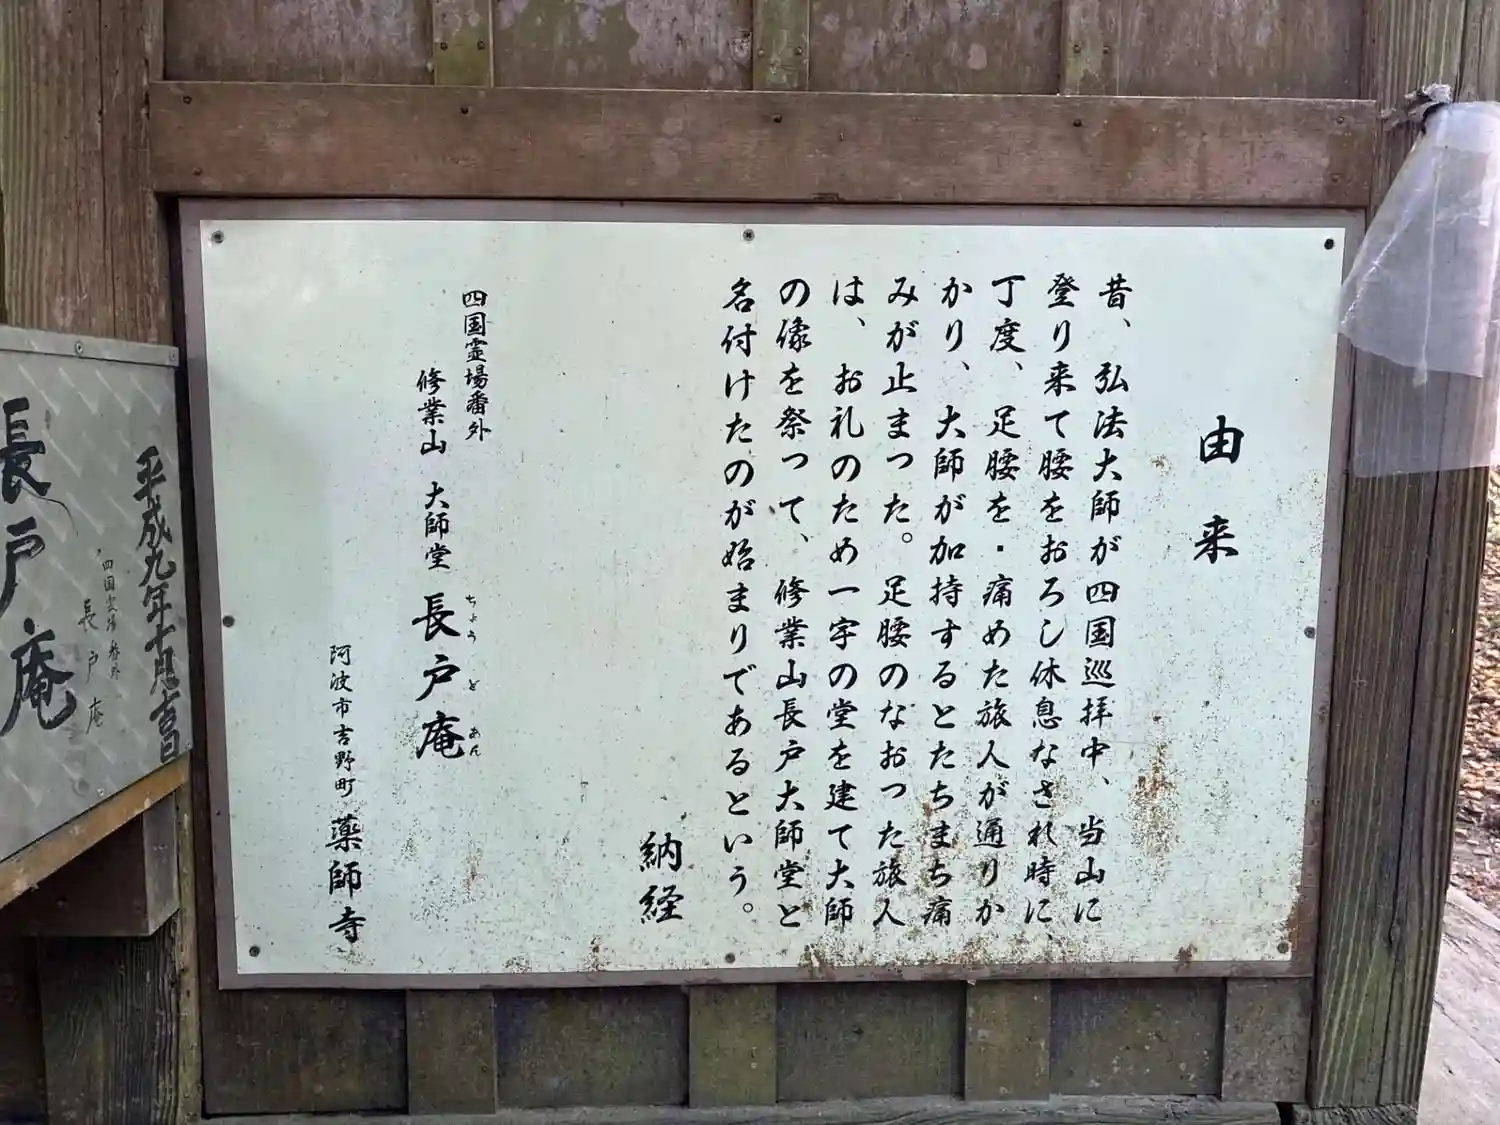 由来
昔、弘法大師が四国巡拝中、当山に
登り来て腰をおろし休息なされ時に、
丁度、足腰を・痛めた旅人が通りか
かり、大師が加持するとたちまち痛
みが止まった。足腰のなおった旅人
は、お礼のため一宇の堂を建て大師
の像を祭って、修業山長戸大師堂と
名付けたのが始まりであるという。
納経
四国霊場番外
修業山 大師堂 長戸庵
ちょうどあん
阿波市吉野町 薬師寺
平成九年十月吉日
四国霊場番外
長戸庵
長戸庵